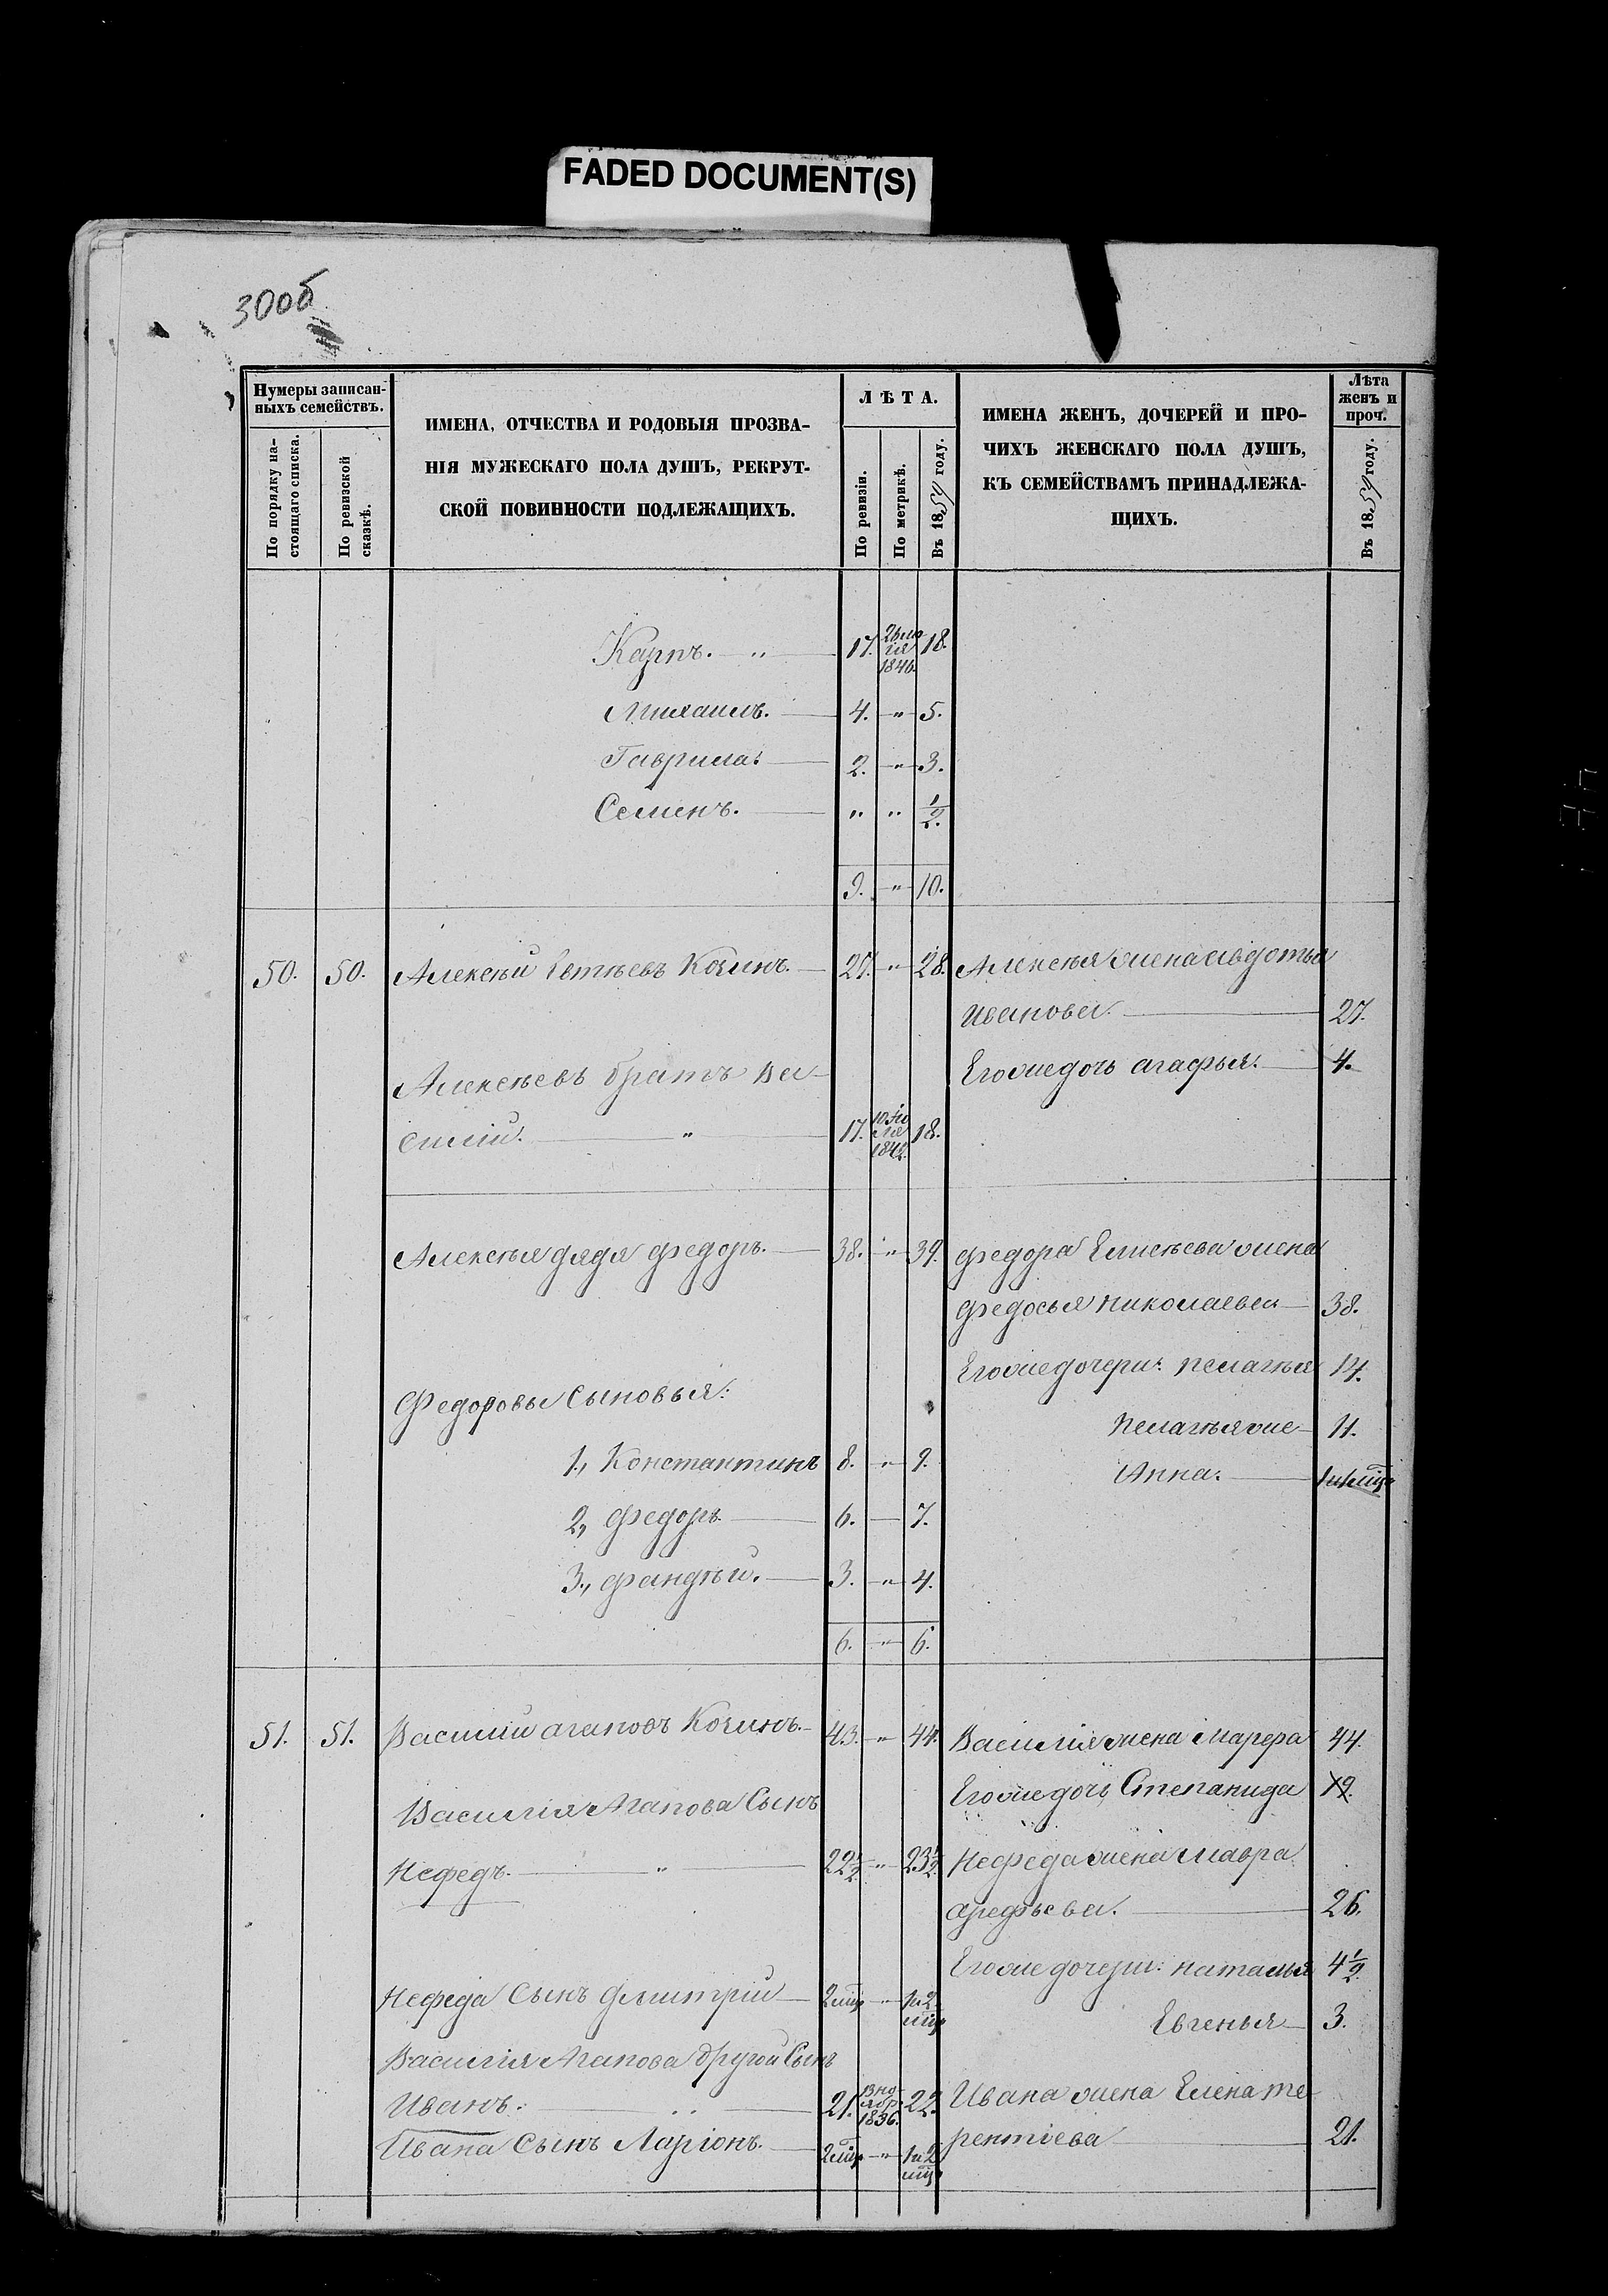 FADED DOCUMENT(S)
300б
Нумеры записан-
ныхъ семействъ.
По порядку на-
стоящаго списка.
По ревизской
сказкѣ.
ИМЕНА, ОТЧЕСТВА И РОДОВЫЯ ПРОЗВА-
НІЯ МУЖЕСКАГО ПОЛА ДУШЪ, РЕКРУТ-
СКОЙ ПОВИННОСТИ ПОДЛЕЖАЩИХЪ.
ЛѢТА.
По ревизіи.
По метрикѣ.
Въ 1859 году.
ИМЕНА ЖЕНЪ, ДОЧЕРЕЙ И ПРО-
ЧИХЪ ЖЕНСКАГО ПОЛА ДУШЪ,
КЪ СЕМЕЙСТВАМЪ ПРИНАДЛЕЖА-
ЩИХЪ.
Лѣта
женъ и
проч.
Въ 1859 году.
Карпъ. — „ — 17. 18.
Михаилъ. — 4. — „ — 5.
Гаврила: — 2. — „ — 3.
Семенъ. — „ „ 1/2.
9. — „ — 10.
50. 50. Алексѣй Козинъ. — 27. — „ — 28. Алексѣя жена авдотья
Иванова. — 27.
Алексѣевъ братъ Ва-
Егоже дочь агафья. — 4.
силій. — „ — 17. 18.
Алексѣя дядя федоръ. — 38. — „ — 39. федора Елисѣева жена
федосья николаева — 38.
Егоже дочери: пелагѣя 14.
Федоровы Сыновья:
пелагѣя же — 11.
1., Константинъ 8. — „ — 9.
Анна. —
2., федоръ — 6. — 7.
3., фандѣй. — 3. — „ — 4.
6. — „ — 6.
51. 51. Василій агаповъ Козинъ. — 43. — „ — 44. Василія жена Марфа 44.
Егоже дочь Степанида
Василія Агапова Сынъ
Нефедъ. — „ — 22 1/2 — „ — 23 1/2. Нефеда жена Мавра
арефьева. — 26.
Егоже дочери: наталья 4 1/2.
Нефеда Сынъ Дмитрій — 2 мѣц — „ — 1 и 2
мѣц
Евгенья — 3.
Василія Агапова другой Сынъ
Иванъ. — 21. 22. Ивана жена Елена те-
рентіева — 21.
Ивана Сынъ Ларіонъ. — 2 мѣц — „ — 1 и 2
мѣц